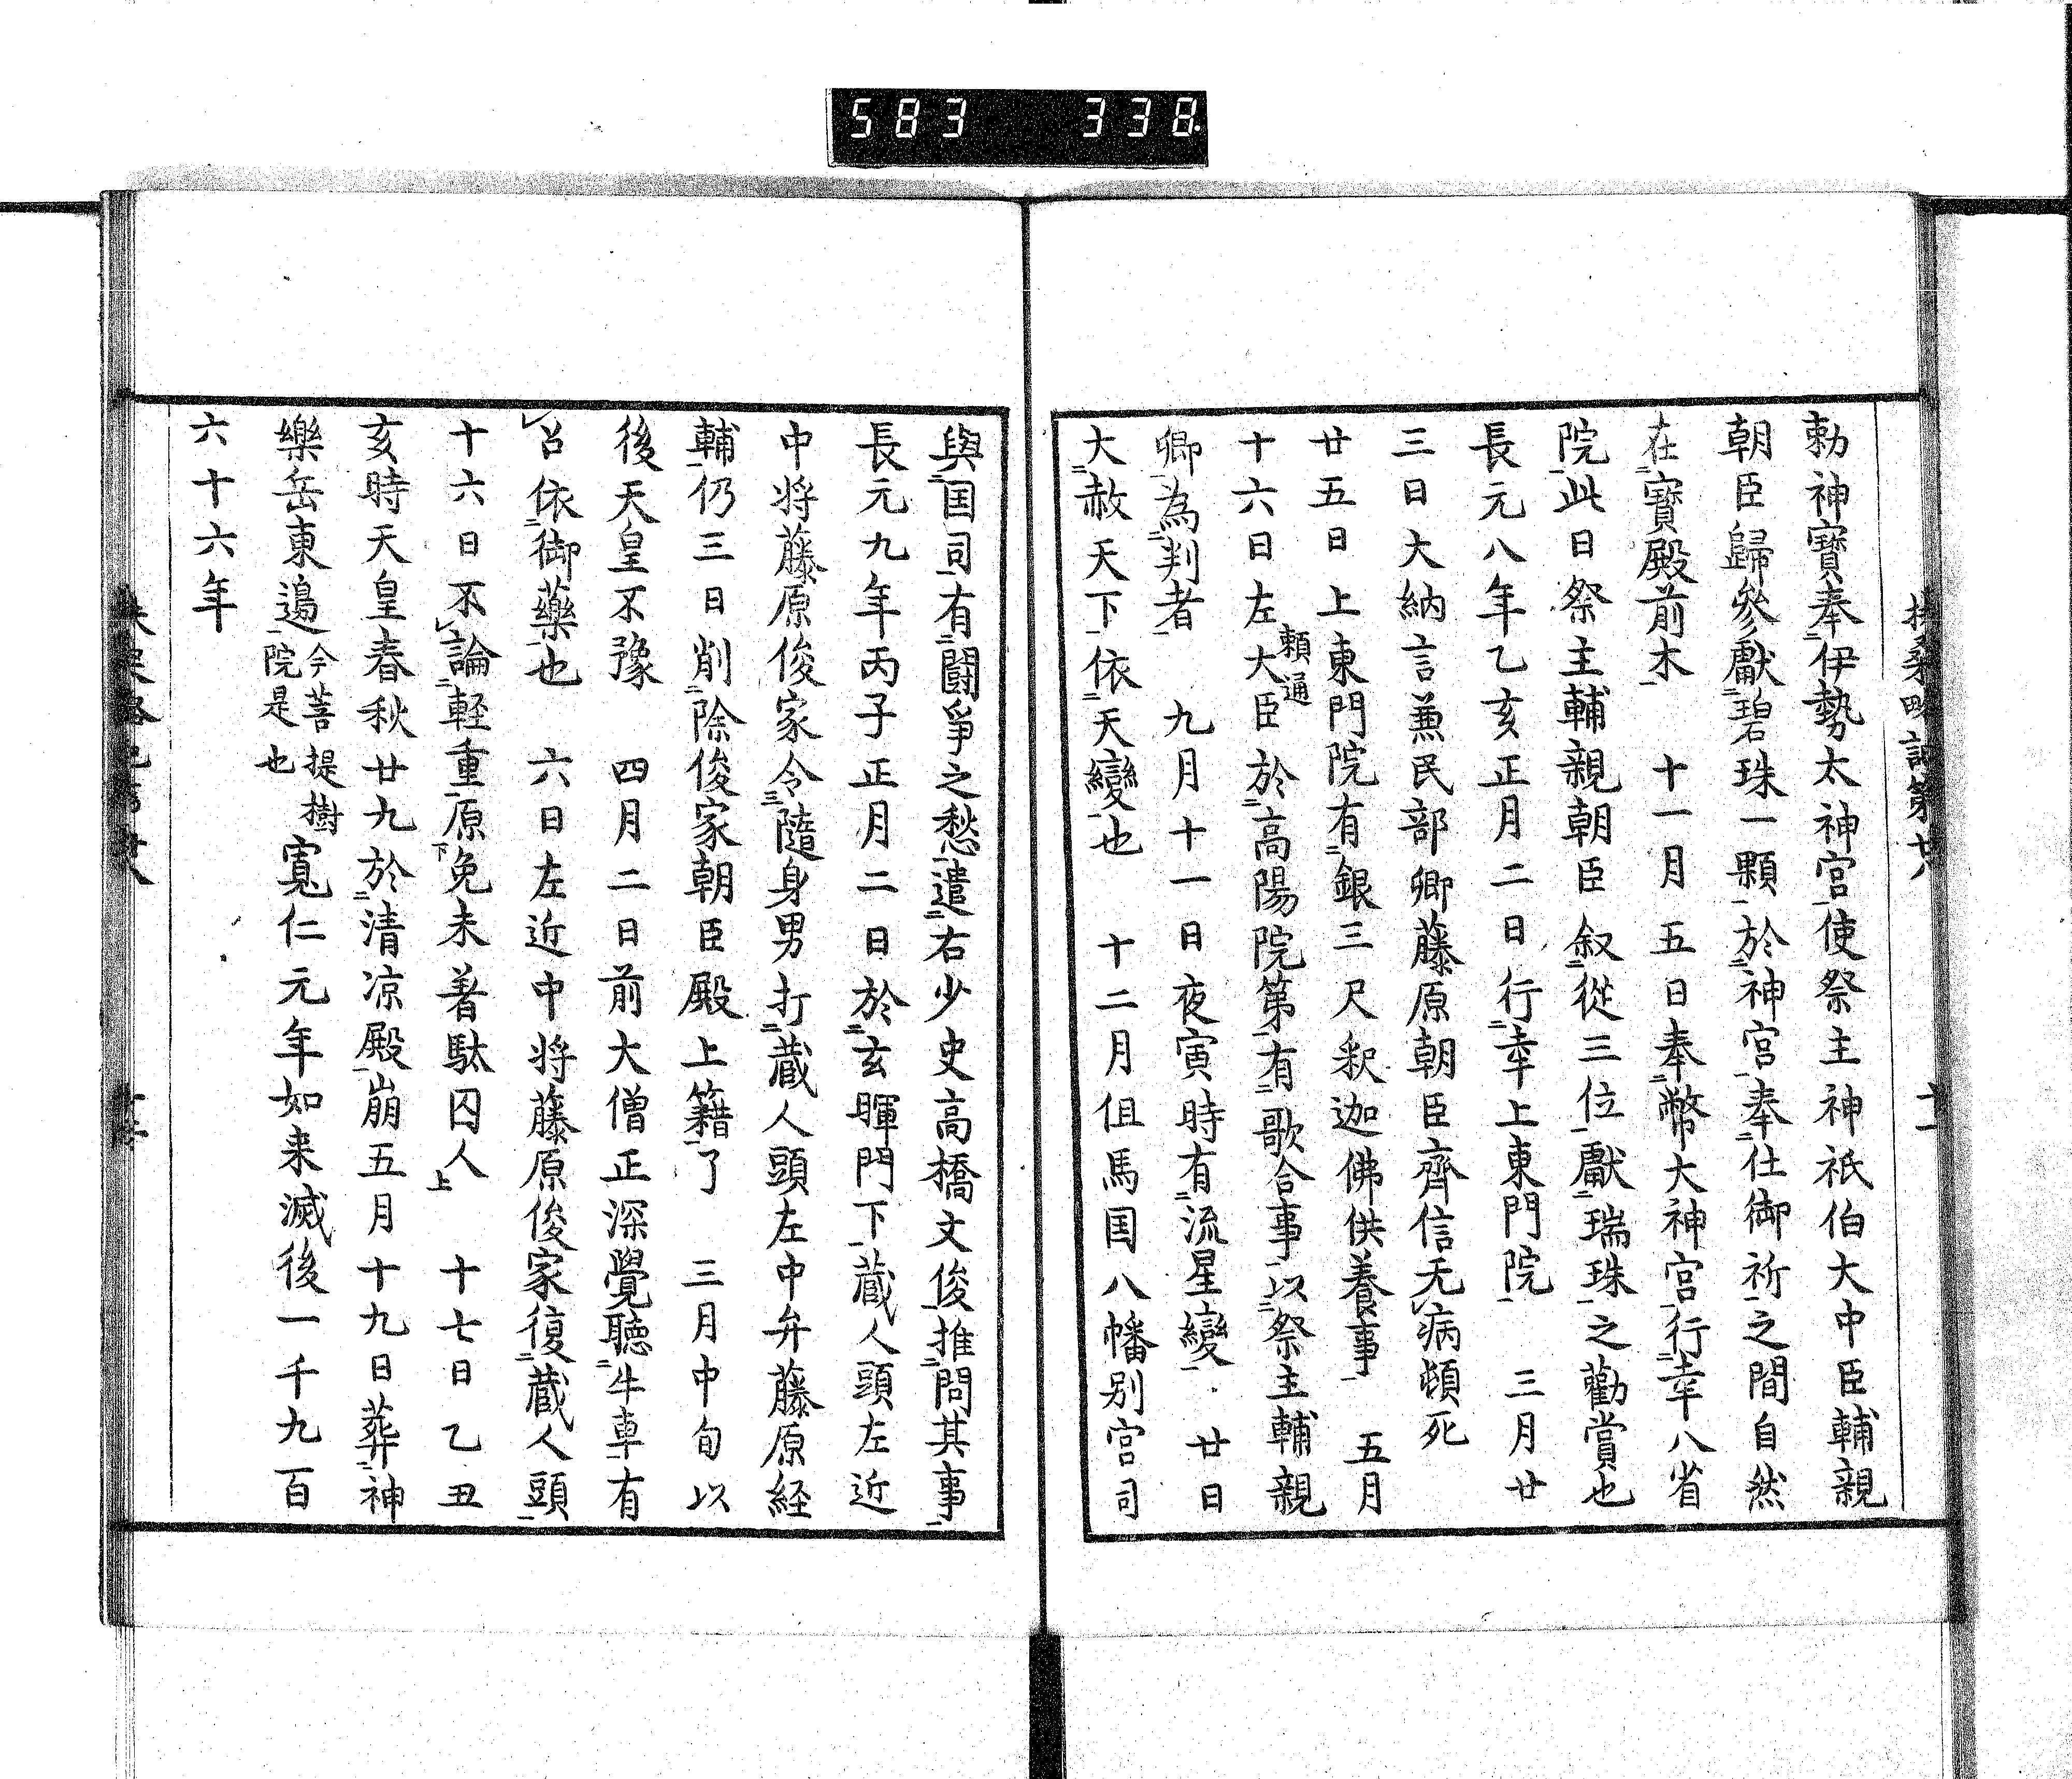 583 338
勅神寳奉伊勢太神宮使祭主神祇伯大中臣輔親
朝臣歸參獻碧珠一顆於神宮奉仕御祈之間自然
在寳殿前木 十一月五日奉幣大神宮行幸八省
院此日祭主輔親朝臣叙從三位獻瑞珠之勸賞也
長元八年乙亥正月二日行幸上東門院 三月廿
三日大納言兼民部卿藤原朝臣齊信无病頓死
廿五日上東門院有銀三尺釈迦佛供養事 五月
十六日左大臣頼通於高陽院第有歌合事以祭主輔親
卿為判者 九月十一日夜寅時有流星變 廿日
大赦天下依天變也 十二月伹馬国八幡別宮司
與国司有鬪爭之愁遣右少史高橋文俊推問其事
長元九年丙子正月二日於玄暉門下蔵人頭左近
中将藤原俊家令隨身男打蔵人頭左中弁藤原経
輔仍三日削除俊家朝臣殿上籍了 三月中旬以
後天皇不豫 四月二日前大僧正深覺聴牛車有
召依御藥也 六日左近中将藤原俊家復蔵人頭
十六日不論軽重原免未著駄囚人 十七日乙丑
亥時天皇春秋廿九於清凉殿崩五月十九日葬神
樂岳東邉今菩提樹院是也 寛仁元年如来滅後一千九百
六十六年